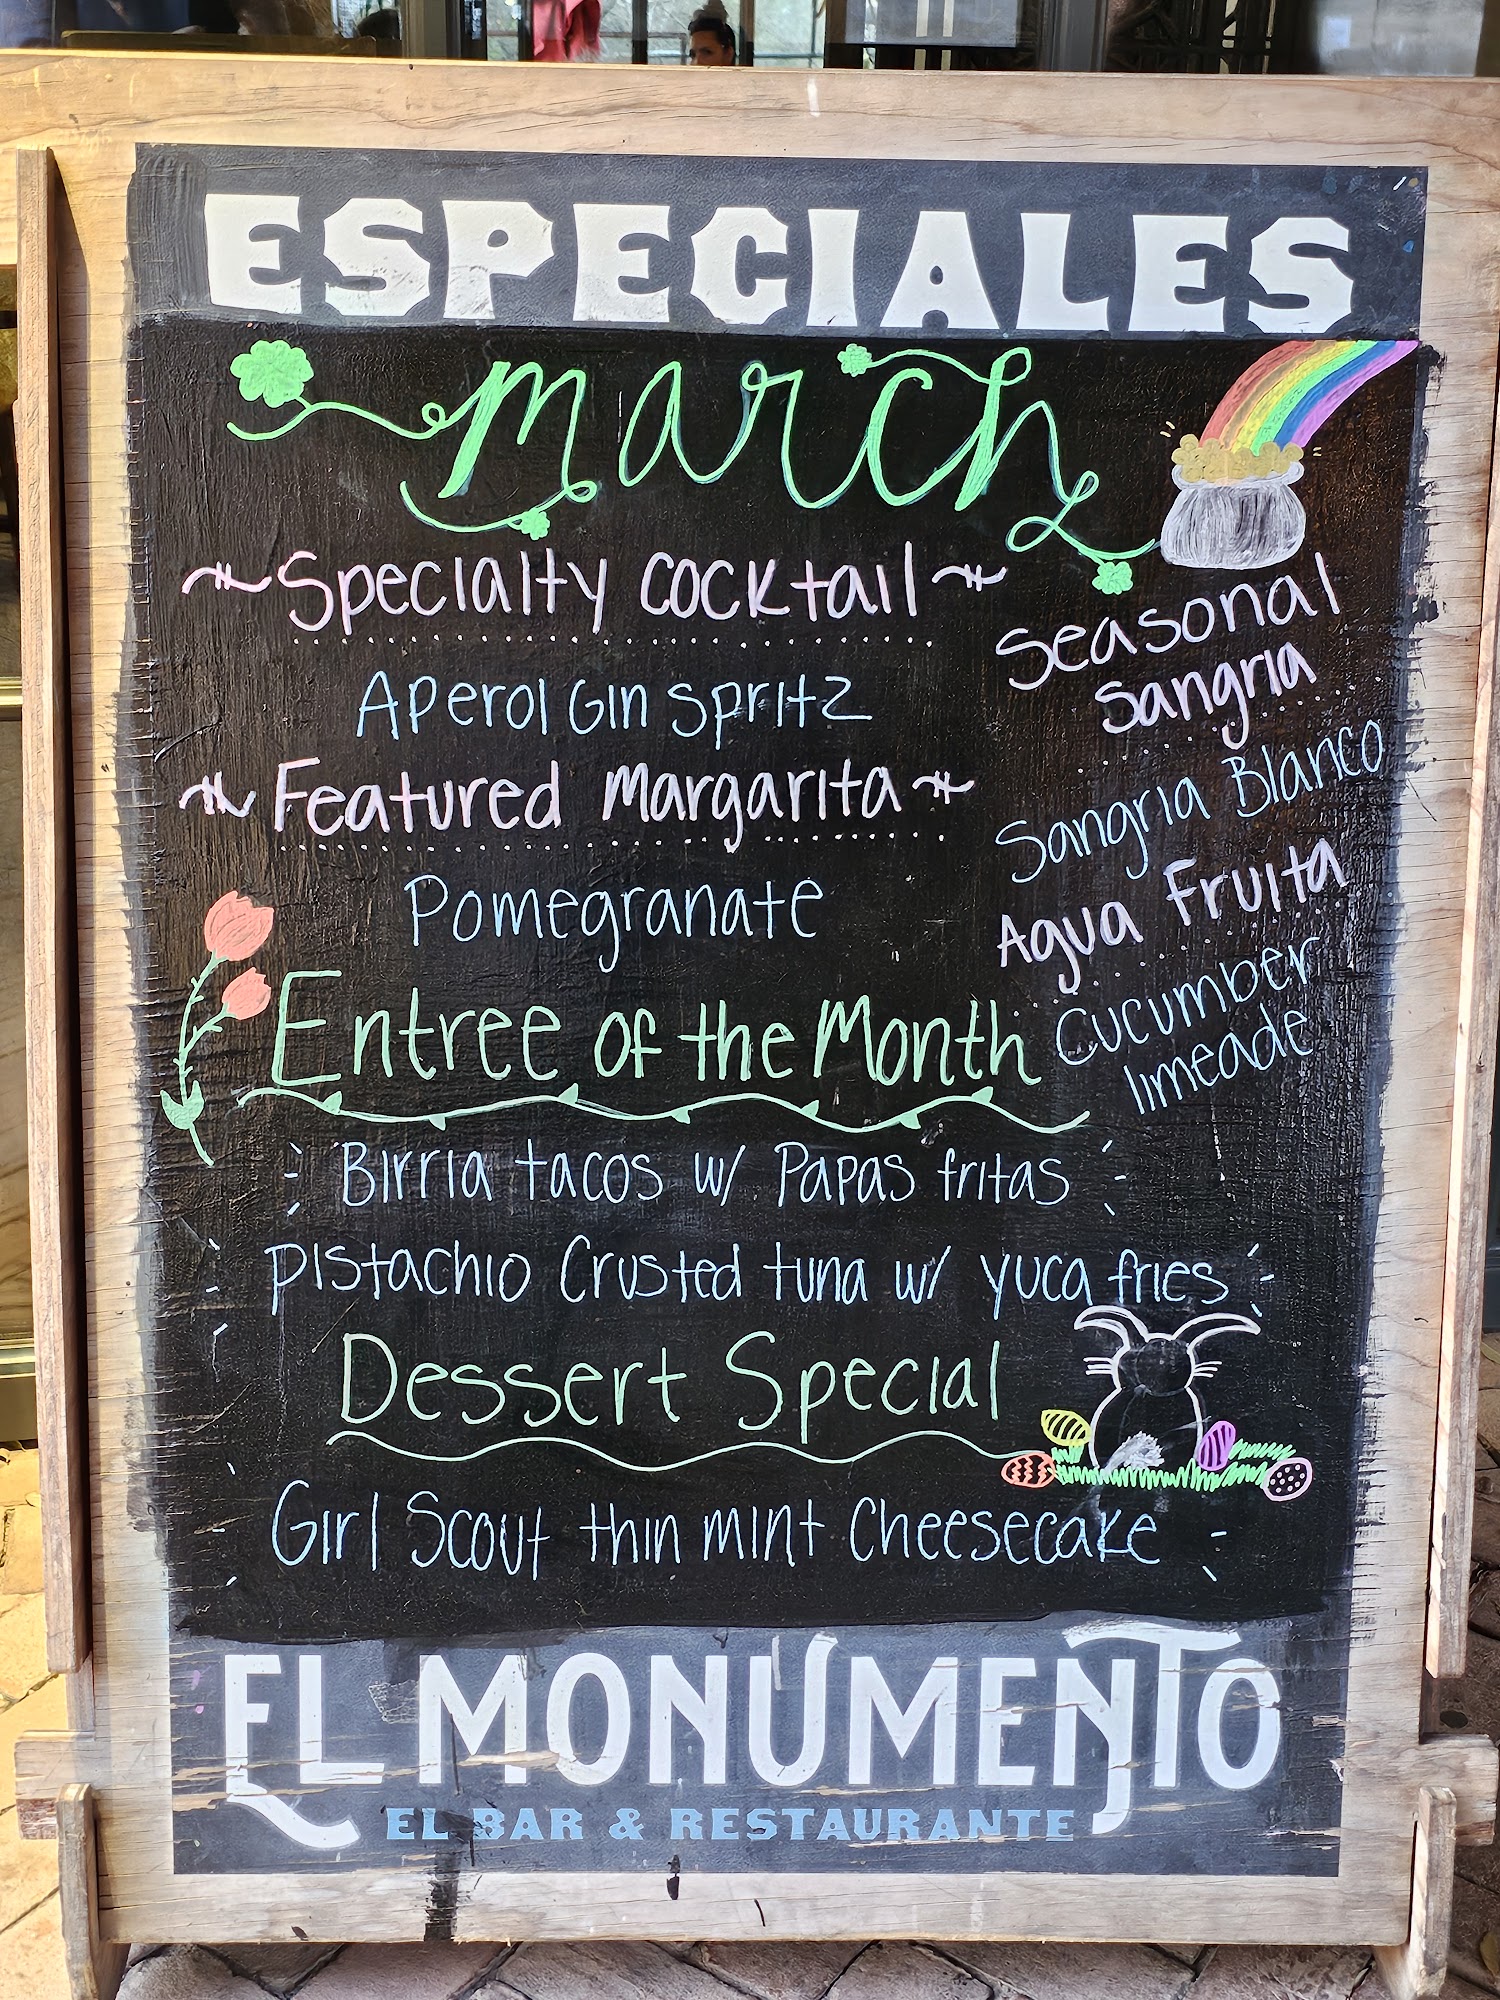 ESPECIALES
march
Specialty Cocktail
Aperol Gin Spritz
Featured Margarita
Pomegranate
Seasonal
Sangria
Sangria Blanco
Agua Fruita
Cucumber
limeade
Entree of the Month
Birria tacos w/ Papas fritas
Pistachio Crusted tuna w/ yuca fries
Dessert Special
Girl Scout thin mint Cheesecake
EL MONUMENTO
EL BAR & RESTAURANTE